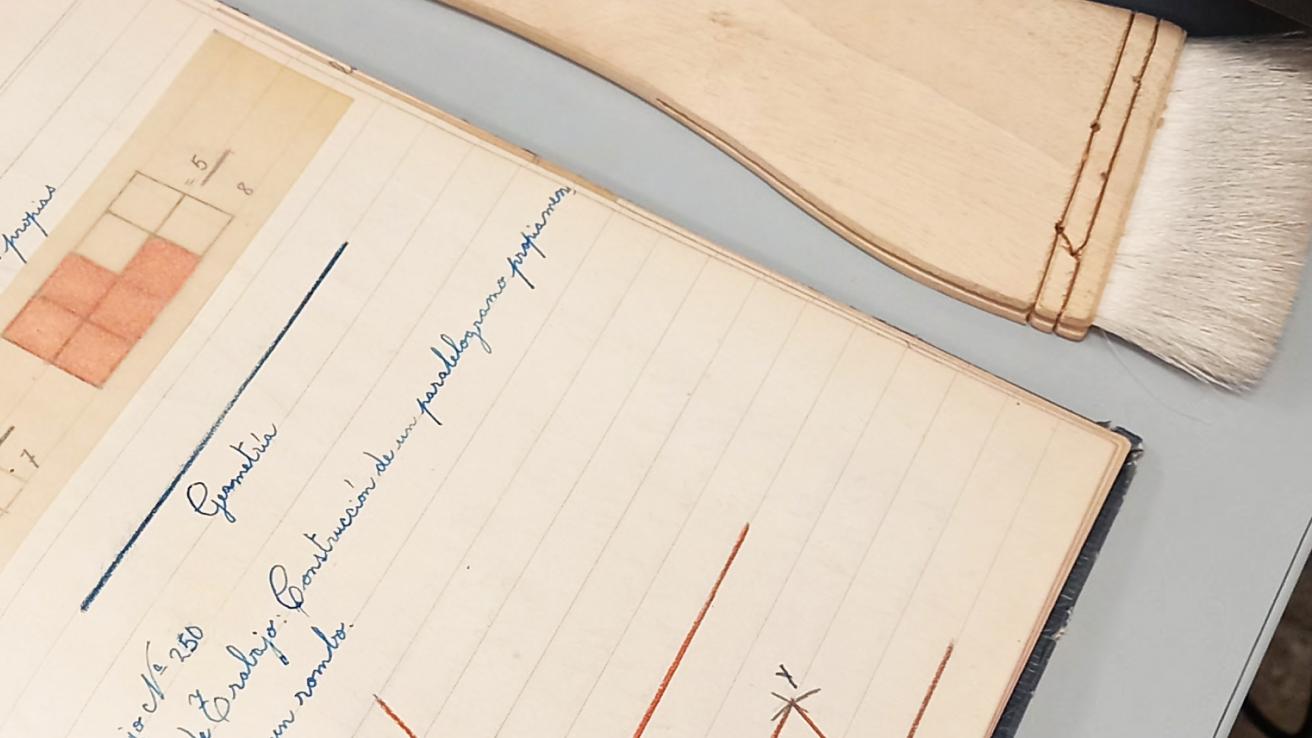 propias
= 5
8
: 7
Geometría
jo Nº 250
de Trabajo: Construcción de un paralelogramo propiamen
un rombo.
Y